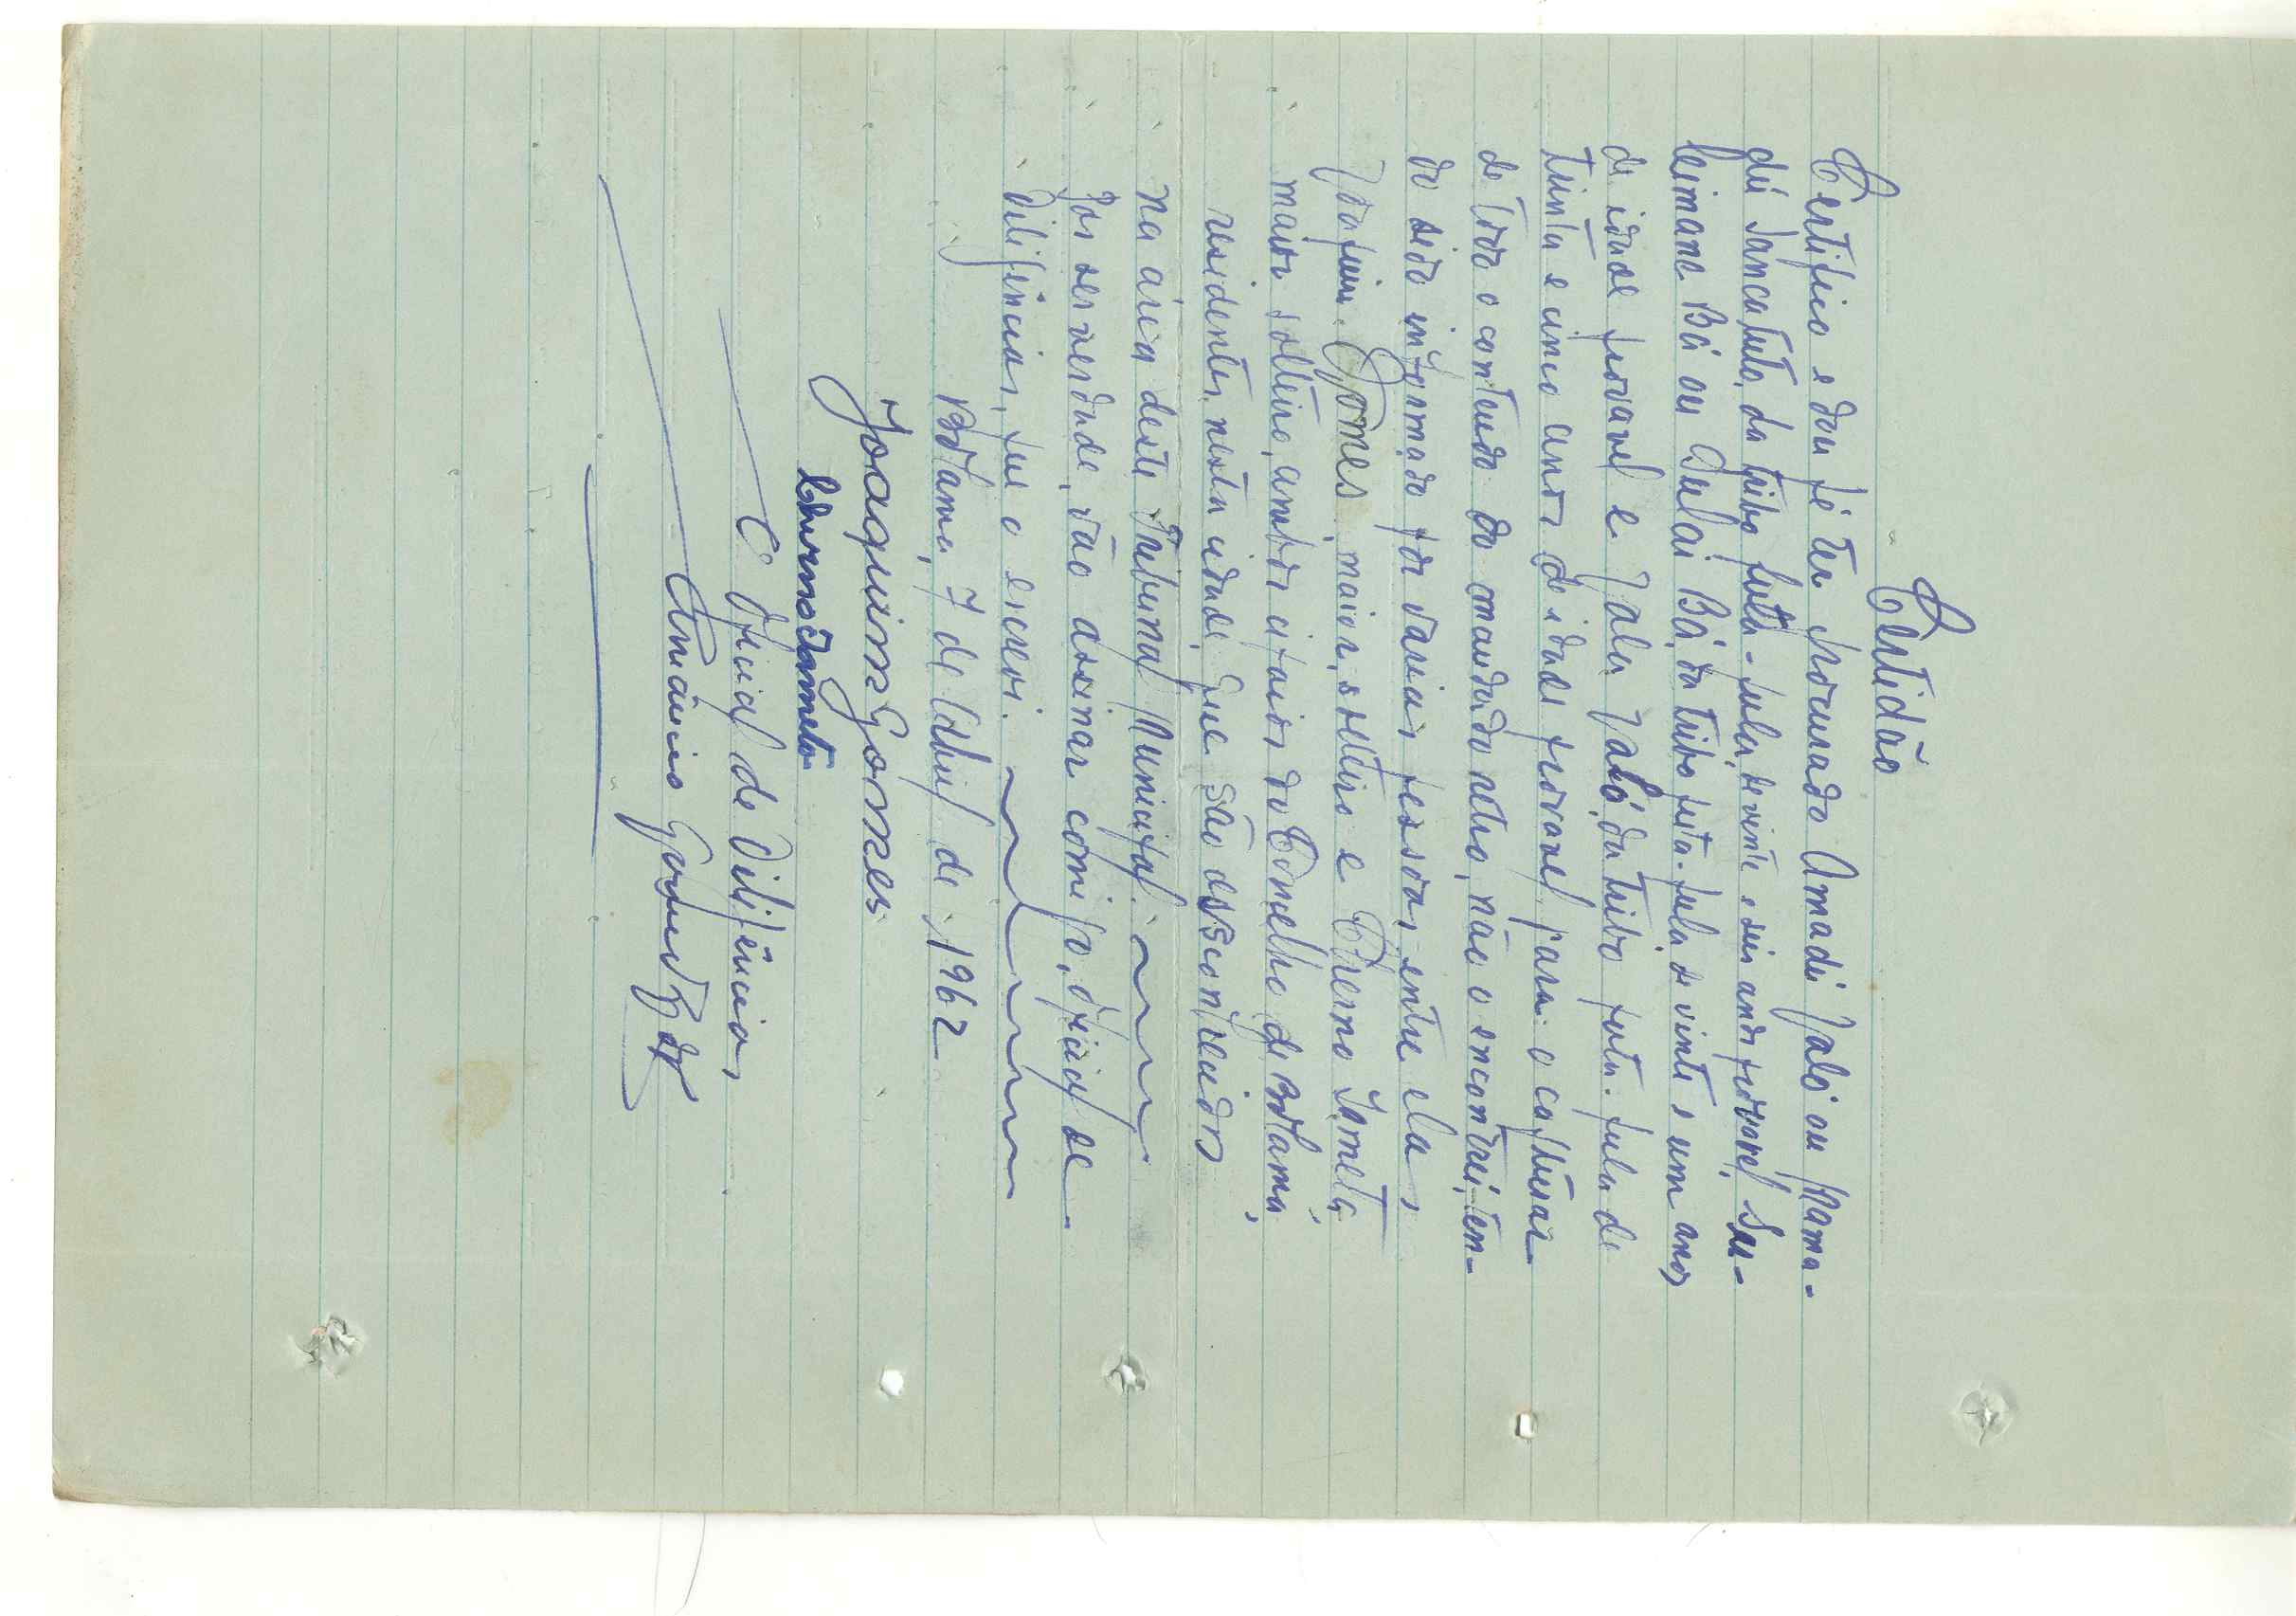 Certidão
Certifico e dou fé ter procurado Amadú Jaló ou Mama-
dú Jancató, da tribo futa-fula, de vinte e seis anos provavel, Su-
leimane Bá ou Julai Bá, da tribo futa-fula, de vinte e um anos
de idade provavel e Jalu Jaló, da tribo futa-fula de
trinta e cinco anos de idade provavel, para o capturar
de todo o conteudo do mandado retro, não o encontrei, ten-
do sido informado por varias pessoas, entre elas,
Joaquim Gomes, maior, solteiro e Cherno Sameta,
maior solteiro, ambos cipaios do Concelho de Bolama,
residentes nesta cidade, que são desconhecidos
na área deste Tribunal Municipal.
Por ser verdade, vão assinar comigo, oficial de
diligências, que o escrevi.
Bolama, 7 de Abril de 1962
Joaquim Gomes
Cherno Sameta
O oficial de diligências,